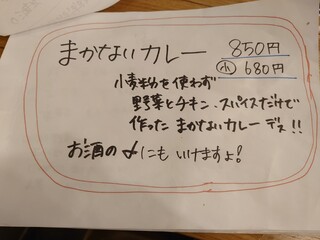 まかないカレー 850円
小 680円
小麦粉を使わず
野菜とチキン、スパイスだけで
作った まかないカレーデス!!
お酒の〆にもいけますよ!